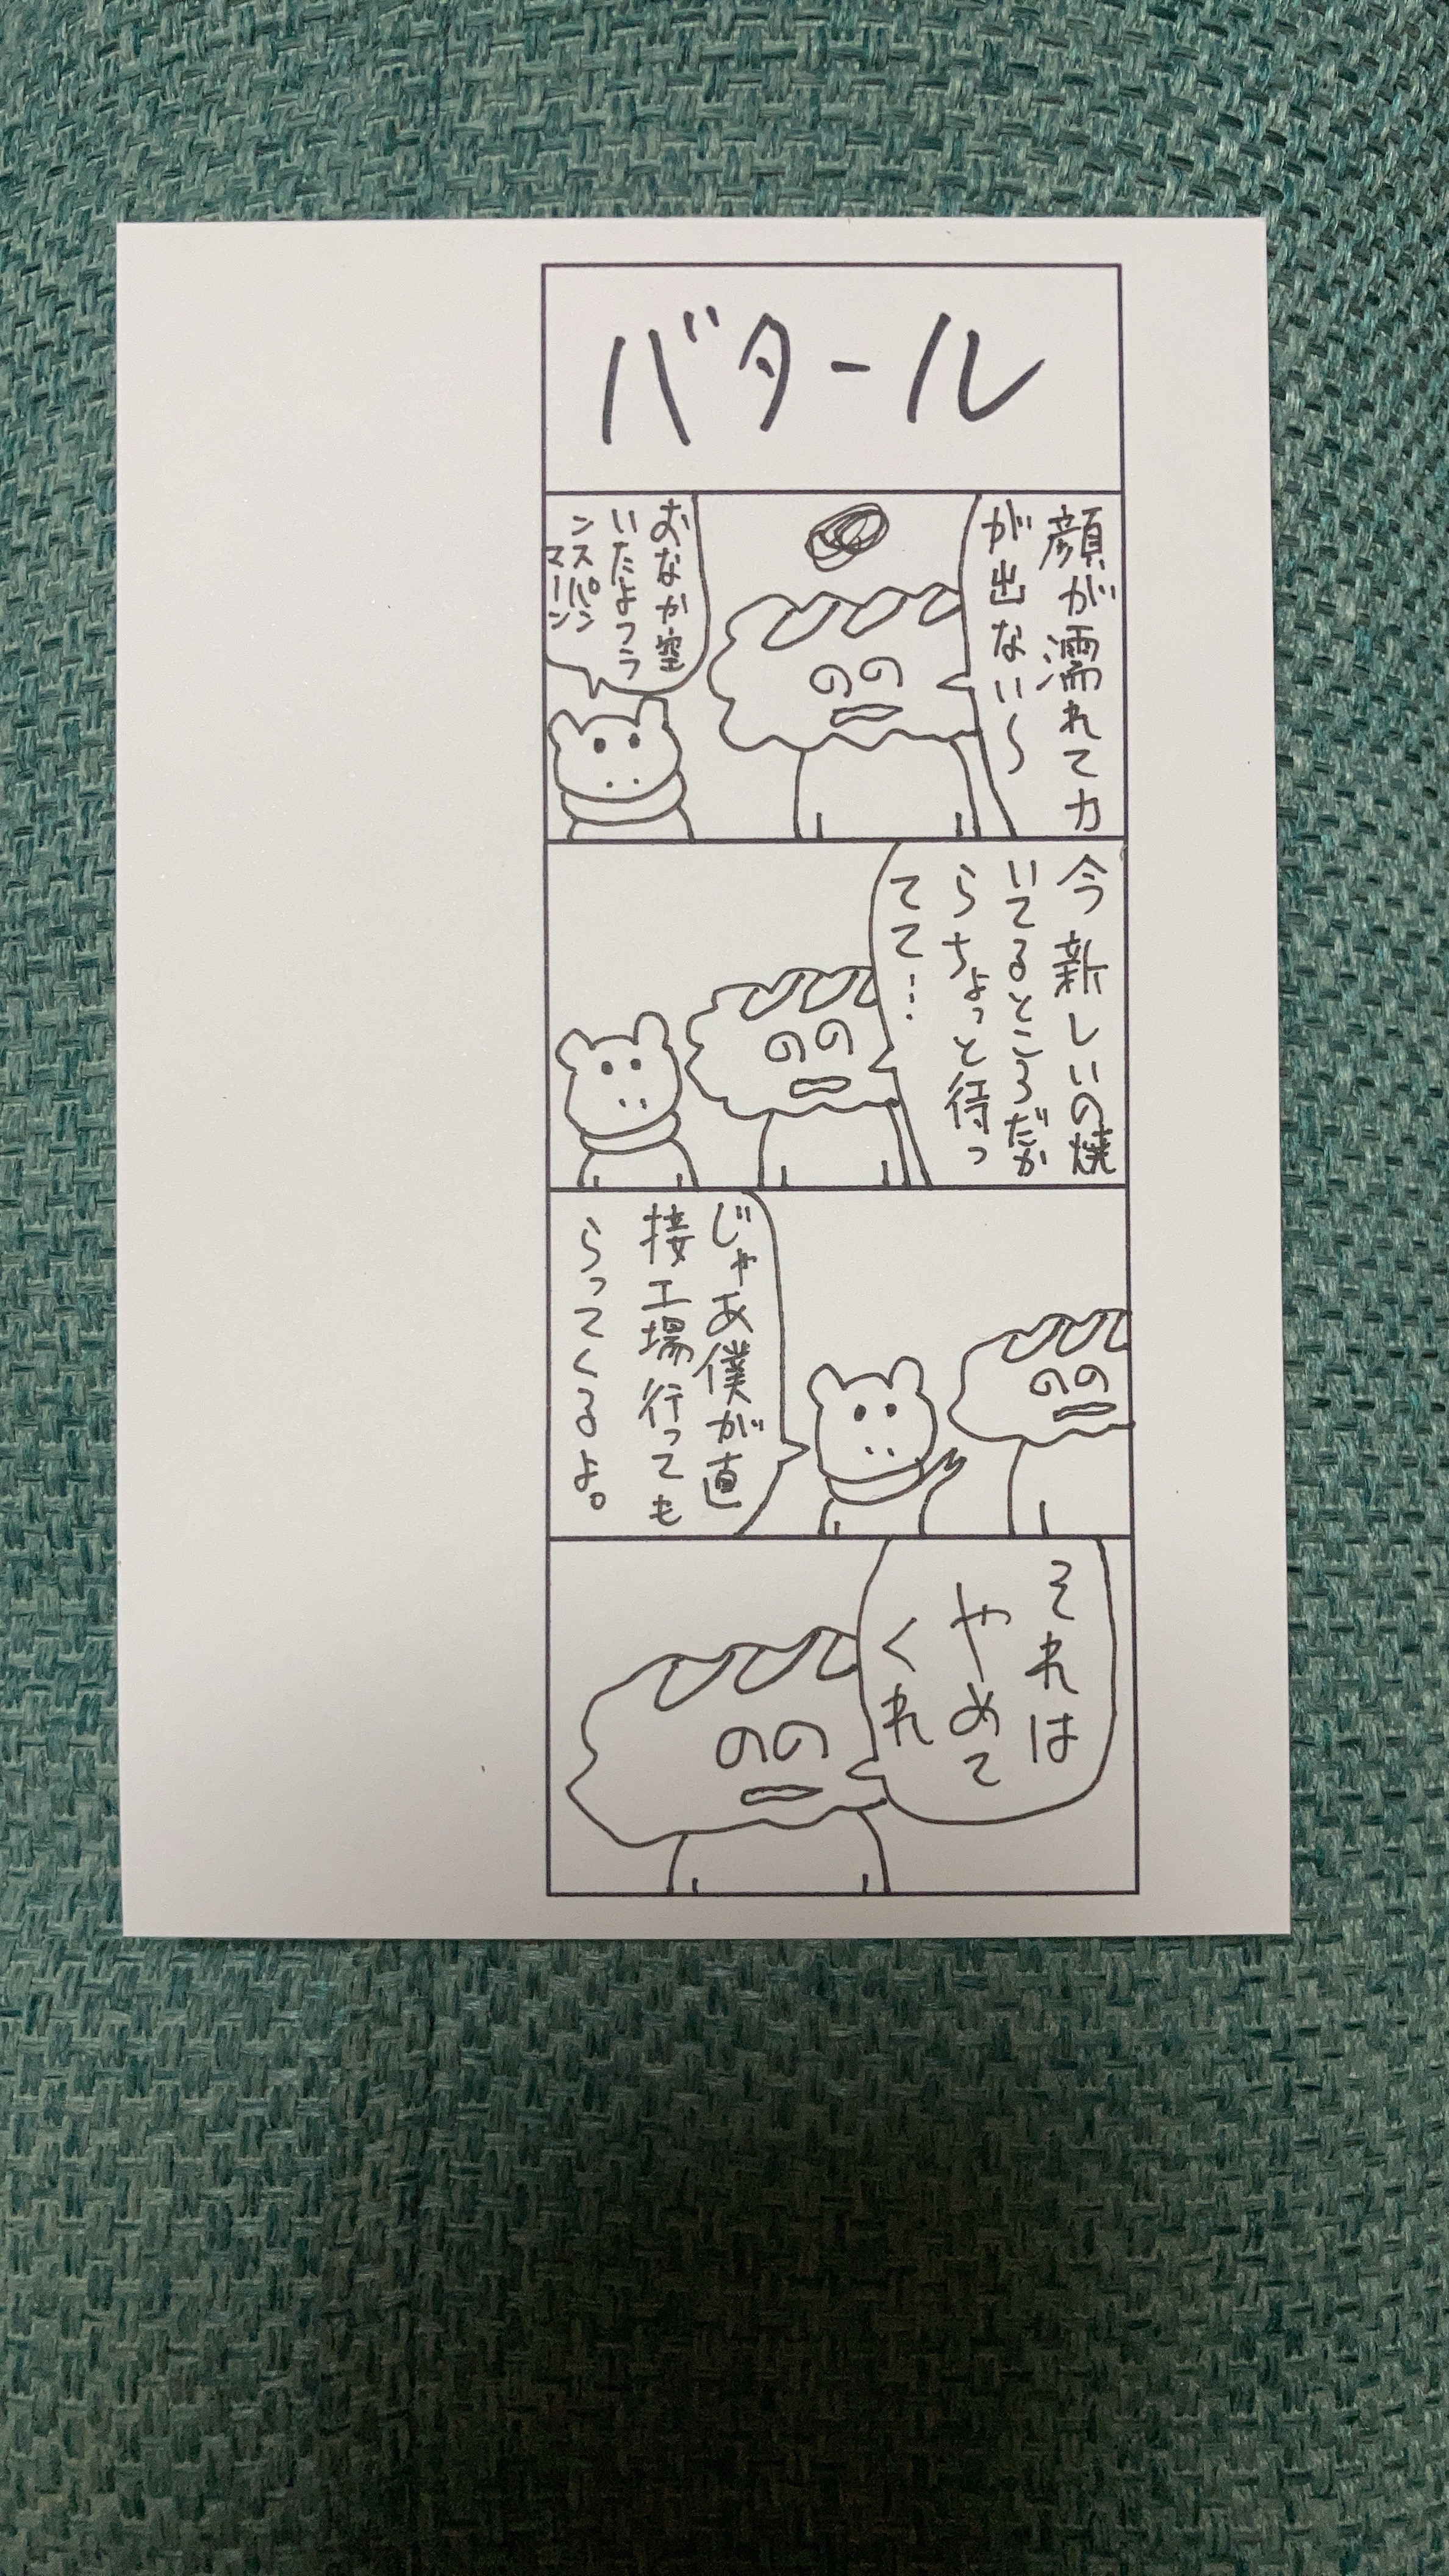 バタール
顔が濡れて力
が出ない〜
おなか空
いたよフラ
ンスパン
マーン
今新しいの焼
いてるところだか
らちょっと待っ
てて…
じゃあ僕が直
接工場行っても
らってくるよ。
それは
やめて
くれ